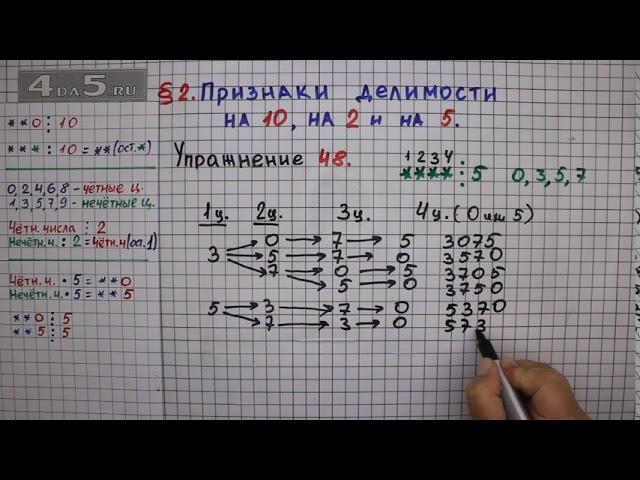 4DA5.RU
§2. Признаки делимости
на 10, на 2 и на 5.
Упражнение 48.
1 2 3 4
**** : 5 0, 3, 5, 7
**0 : 10
*** : 10 = **(ост.*)
0, 2, 4, 6, 8 - чётные ц.
1, 3, 5, 7, 9 - нечётные ц.
Чётн. числа : 2
Нечётн. ч. : 2 = чётн. ч (ост. 1)
Чётн. ч. · 5 = **0
Нечётн. ч. · 5 = **5
**0 : 5
**5 : 5
1ц. 2ц. 3ц. 4ц. (0 или 5)
3 → 0 → 7 → 5 3075
→ 5 → 7 → 0 3570
→ 7 → 0 → 5 3705
→ 5 → 0 3750
5 → 3 → 7 → 0 5370
→ 7 → 3 → 0 573